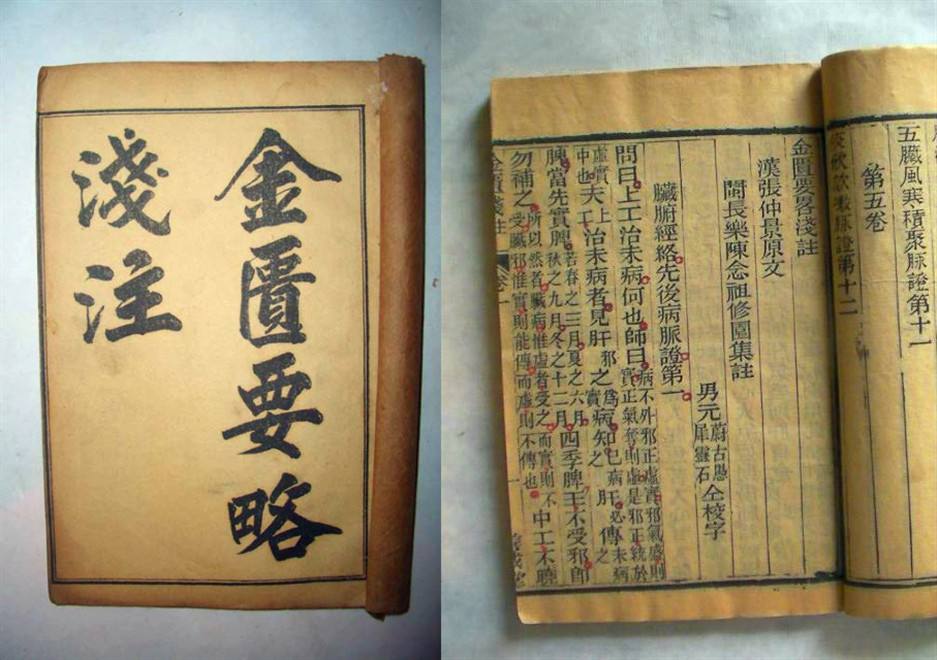 金匱要略
淺注
五臟風寒積聚脉證第十一
第五卷
脉證第十二
金匱要畧淺註
漢張仲景原文
閩長樂陳念祖修園集註
男元蔚古愚犀靈石仝校字
臟腑經絡先後病脈證第一
問曰上工治未病何也師曰病不外邪正虛實邪氣盛則實正氣奪則虛是邪正統於
虛實中也夫上工治未病者見肝邪之實病知
脾當先實脾若春之三月夏之六月秋之九月冬之十二月四季脾王不受邪即
勿補之所以然者臟病惟虛者受之而實則不受臟邪惟實則能傳而虛則不傳也中工不曉
金匱淺註 卷一 一